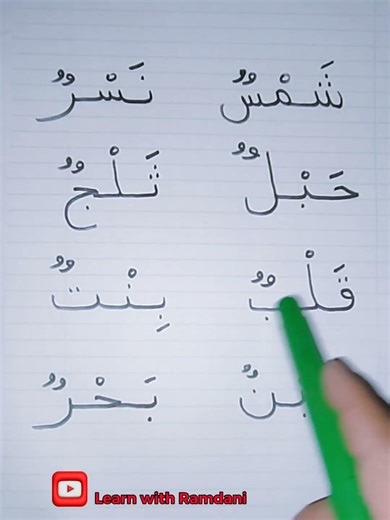 شَمْسٌ نَسْرٌ
حَبْلٌ ثَلْجٌ
قَلْبٌ بِنْتٌ
بَحْرٌ
Learn with Ramdani